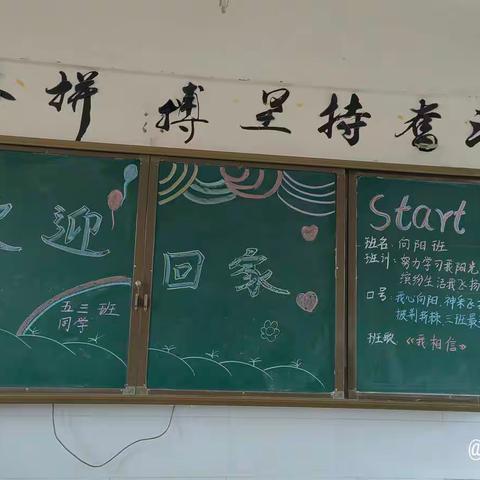 拼搏 坚持 奋
迎
回家
五三班
同学
Start
班名：向阳班
班训：努力学习我阳光
缤纷生活我飞扬
口号：我心向阳，神采飞
披荆斩棘，三班最
班歌 《我相信》
@